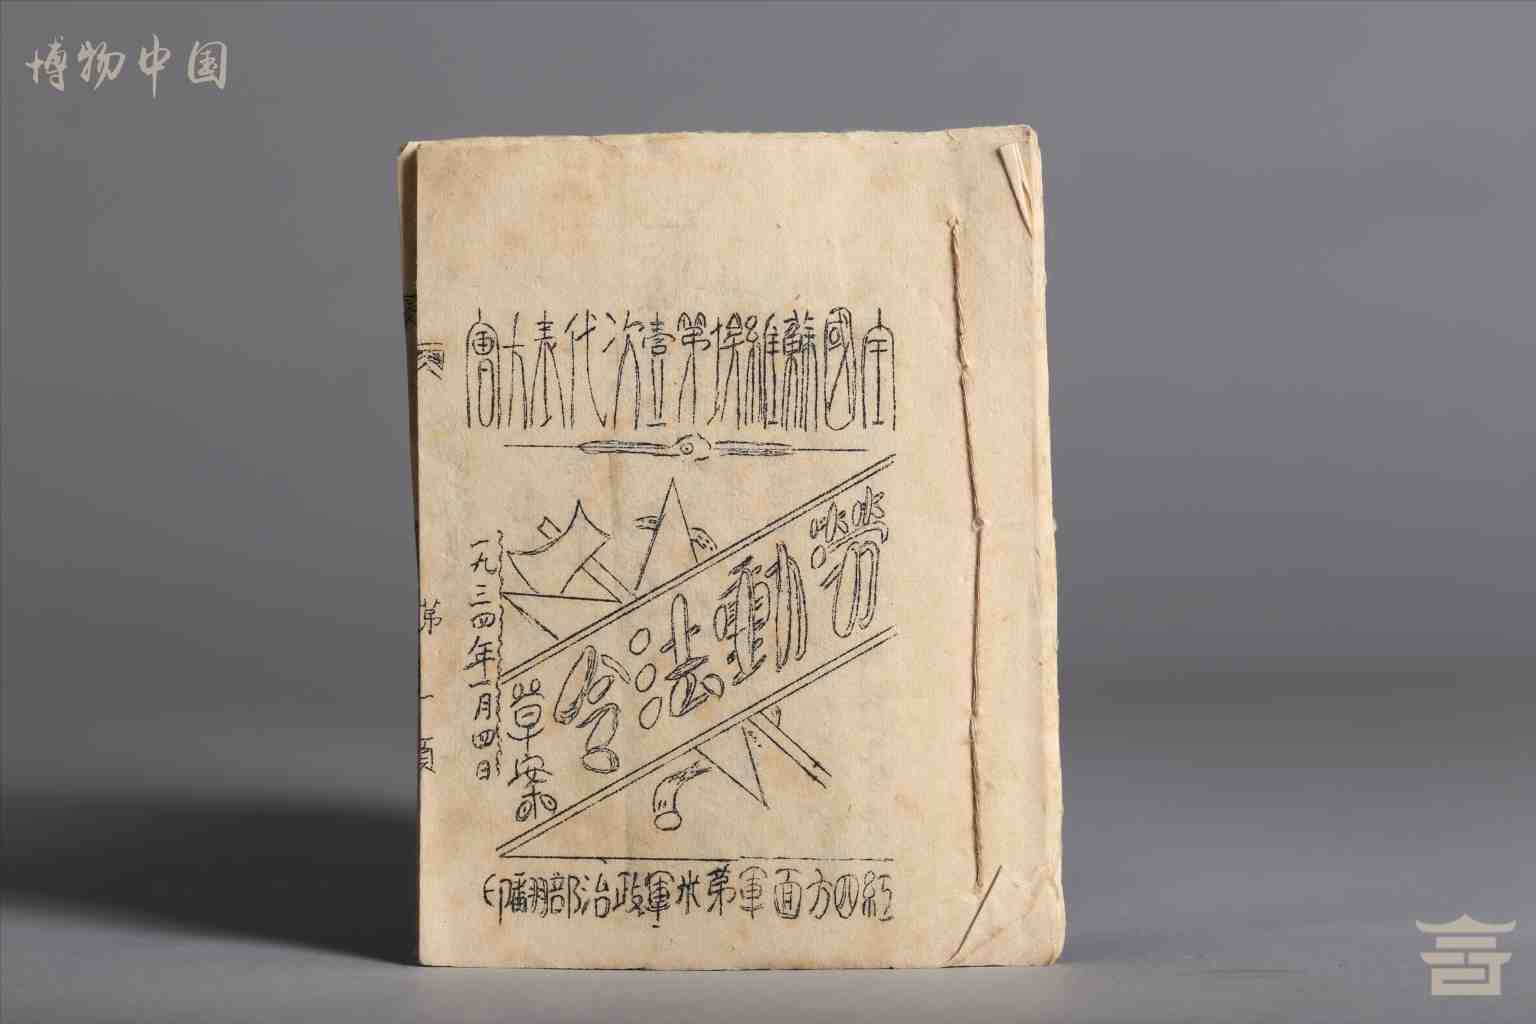 博物中国
全國蘇維埃第壹次代表大會
勞動法令
草案
一九三四年一月四日
紅四方面軍第軍政治部翻印
第一頁